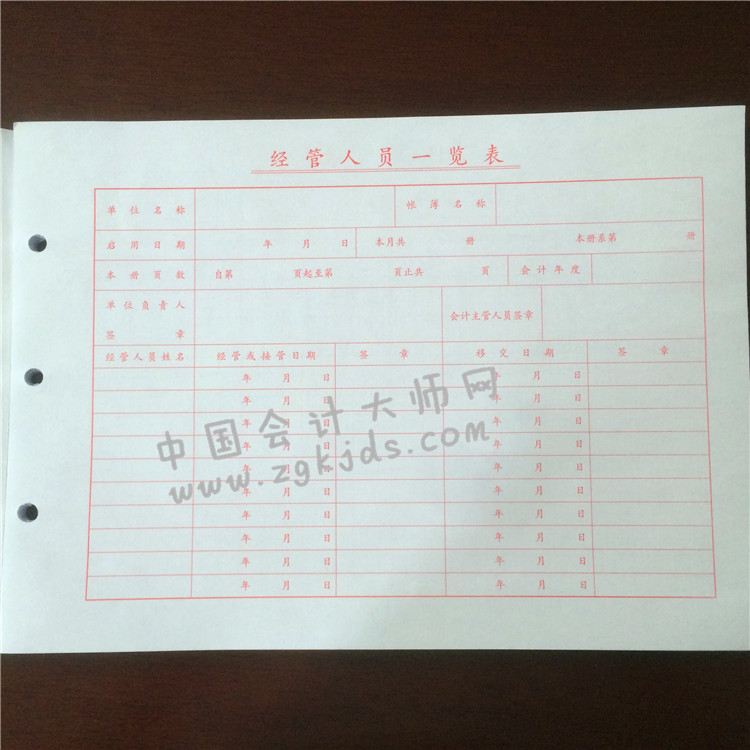 经管人员一览表
单位名称 帐簿名称
启用日期 年 月 日 本月共 册 本册系第 册
本册页数 自第 页起至第 页止共 页 会计年度
单位负责人
签章 会计主管人员签章
经管人员姓名 经管或接管日期 签章 移交日期 签章
年 月 日 年 月 日
年 月 日 年 月 日
年 月 日 年 月 日
年 月 日 年 月 日
年 月 日 年 月 日
年 月 日 年 月 日
年 月 日 年 月 日
年 月 日 年 月 日
年 月 日 年 月 日
年 月 日 年 月 日
中国会计大师网
www.zgkjds.com